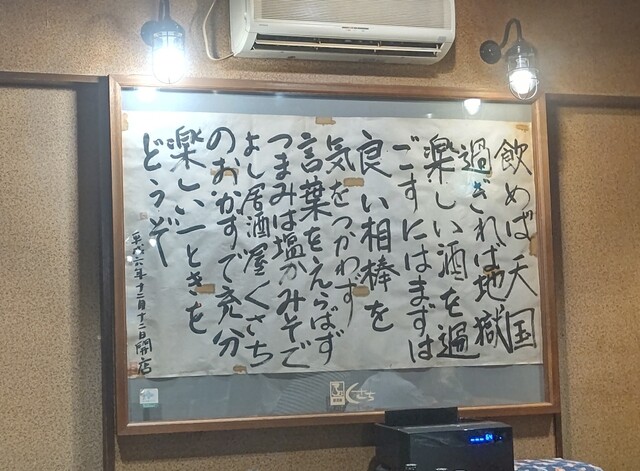 飲めば天国
過ぎれば地獄
楽しい酒を過
ごすにはまずは
良い相棒を
気をつかわず
言葉をえらばず
つまみは塩かみそで
よし居酒屋くさち
のおかずで充分
楽しい一ときを
どうぞ
平成六年十二月十二日開店
くさち